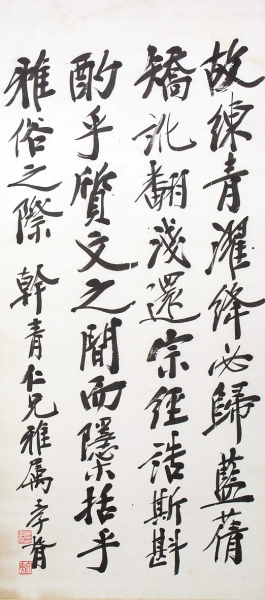 故練青濯絳必歸藍蒨
矯訛翻淺還宗經誥斯斟
酌乎質文之間而隱括乎
雅俗之際 幹青仁兄雅屬 孝胥